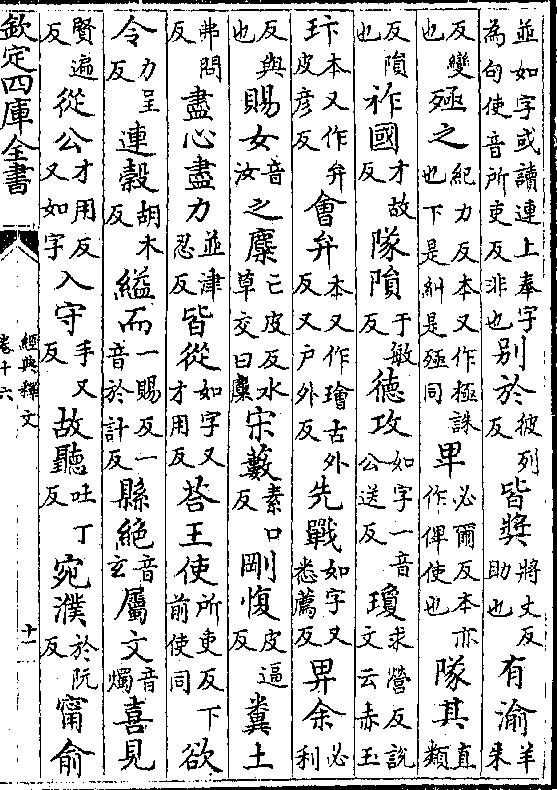 並如字或讀連上奉字為句使音所吏反非也别於彼列反皆奬將丈反助也有渝羊朱
反變也殛之紀力反本又作極誅也下是糾是殛同卑必爾反本亦作俾使也隊其直類
反隕也祚國才故反隊隕于敏反德攻如字一音公送反瓊求營反說文云赤玉
玣本又作弁皮彦反會弁本又作璯古外反又户外反先戰如字又悉薦反畀余必利
反與也賜女音汝之麋亡皮反水草交曰麋宋藪素口反剛愎皮逼反糞土
弗問反盡心盡力並津忍反皆從如字又才用反荅王使所吏反下前使同欲
令力呈反連榖胡木反縊而一賜反一音於計反縣絶音玄屬文音燭喜見
賢遍反從公才用反又如字入守手又反故聽吐丁反宛濮於阮反甯俞
欽定四庫全書
經典釋文
卷十六
十一